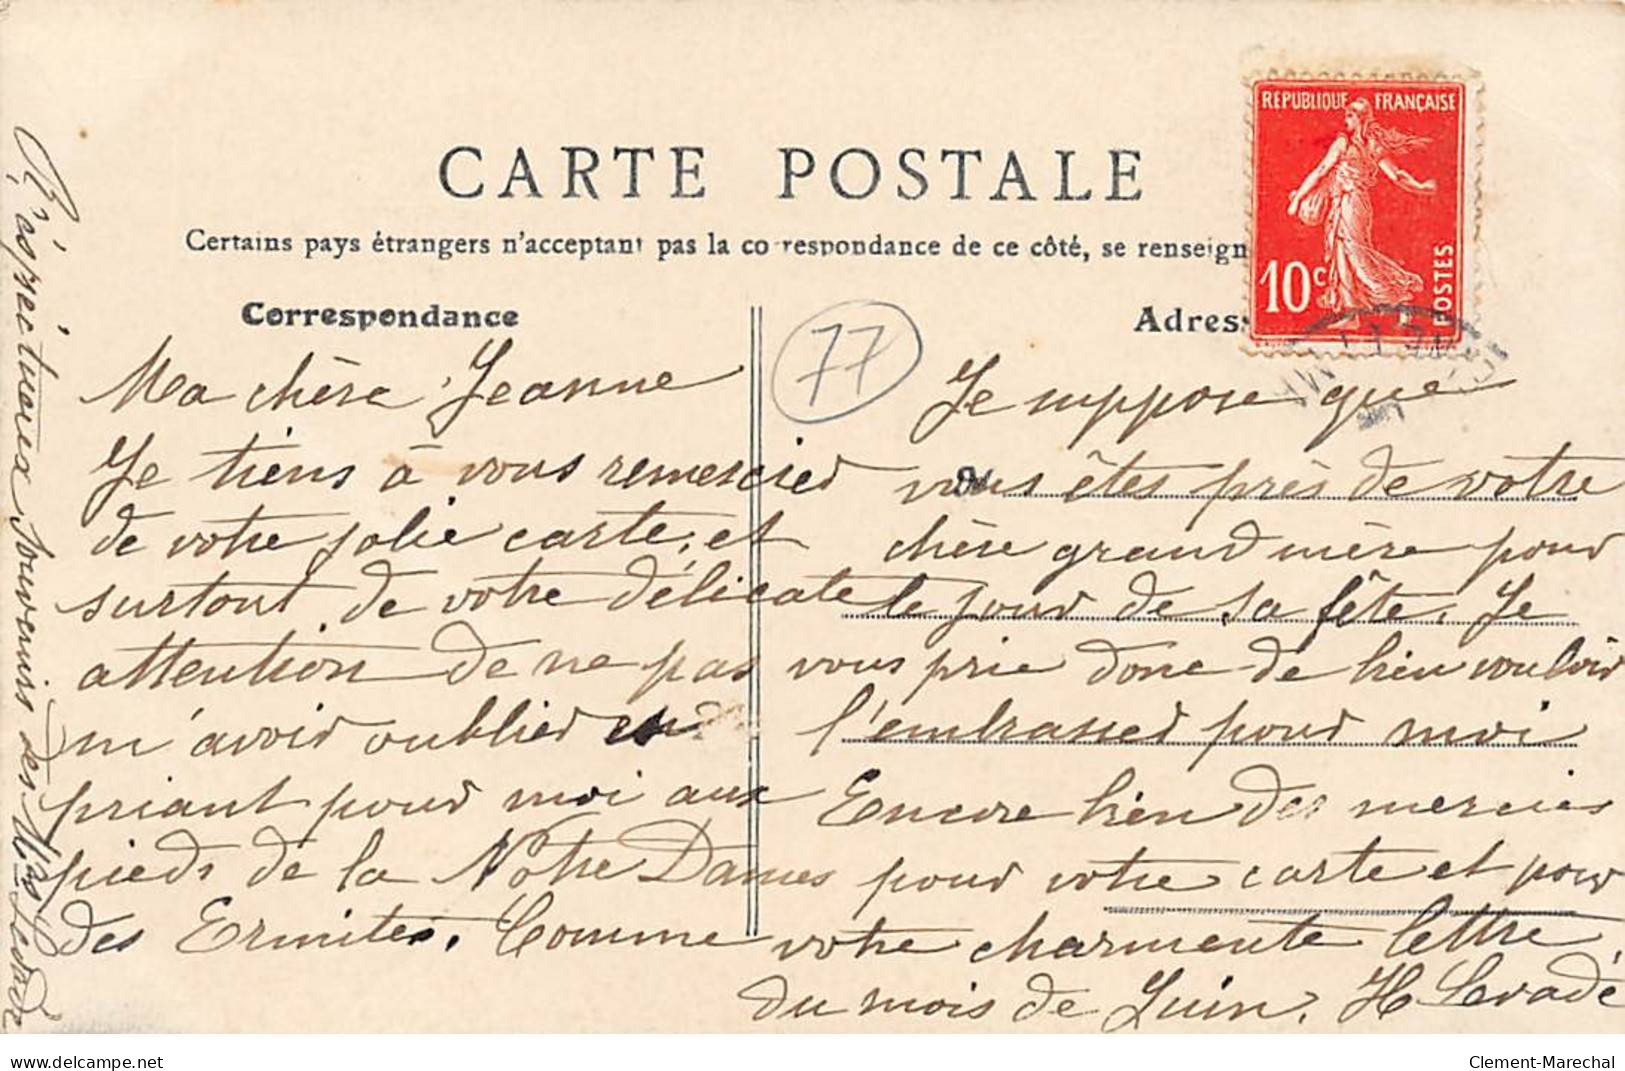 CARTE POSTALE
Certains pays étrangers n'acceptant pas la correspondance de ce côté, se renseign
REPUBLIQUE FRANÇAISE
10c
POSTES
Correspondance
Adres
77
Ma chère Jeanne
Je tiens à vous remercier
de votre jolie carte, et
surtout de votre délicate
attention de ne pas
m'avoir oublier en
priant pour moi aux
pieds de la Notre Dames
des Ermites. Comme
Je suppose que
vous êtes près de votre
chère grand mère pour
le jour de sa fête. Je
vous prie donc de bien vouloir
l'embrasser pour moi
Encore bien des mercies
pour votre carte et pour
votre charmente lettre
du mois de Juin. H Levadé
Réspéctueux souvenirs des
delcampe.net
Clement-Marechal